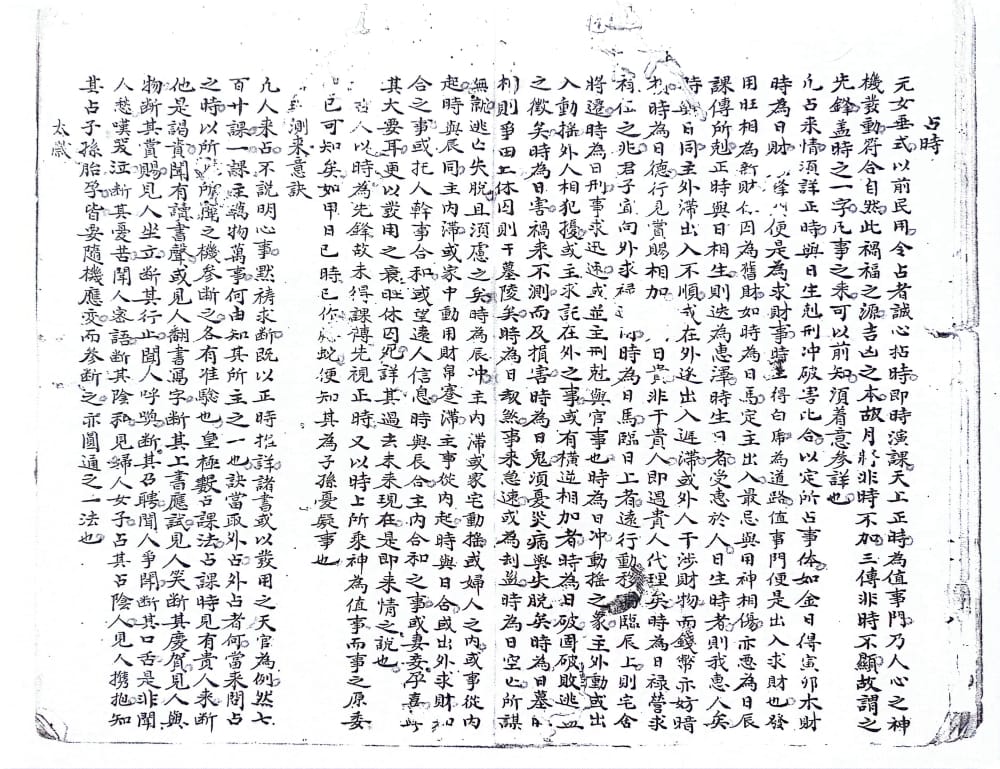 占時
元女垂式以前民用令占者誠心拈時即時演課天上正時為值事門乃人心之神
機發動符合自然此禍福之源吉凶之本故月將非時不加三傳非時不顯故謂之
先鋒盖時之一字凡事之來可以前知須着意参詳也
凡占來情須詳正時與日生剋刑冲破害比合以定所占事体如金日得寅卯木財
時為日財 便是為求財事時上得白虎為道路值事門便是出入求財也發
用旺相為新財休囚為舊財如時為日馬定主出入最忌與用神相傷亦惡為日辰
課傳所剋正時與日相生則迭為惠澤時生日者受惠於人日生時者則我惠人矣
時與日同主外滯出入不順或在外遂出入遲滯或外人干涉財物而錢幣亦好暗
時為日德行見賞賜相加 日貴非干貴人即遇貴人代理矣時為日禄營求
有仁之兆君子宜向外求禄 時為日馬臨日上者遠行動移 臨辰上則宅舍
將遠時為日刑事求迅速或並主刑尅與官事也時為日冲動摇之象主外動或出
入動摇外人相犯擾或主求託在外之事或有横逆相加者時為日破图破敗逃亡
之徵矣時為日害禍来不測而及損害時為日鬼須憂災病與失脱矣時為日墓
相則爭田土休囚則干墓陵矣時為日劫煞事来急速或為刦盗時為日空亡所謀
無就逃亡失脱且須慮之矣時為辰冲主内滯或家宅動摇或婦人之内或事從内
起時與辰同主内滯或家中動用財帛蹇滯主事從内起時與日合或出外求財
合之事或托人幹事合和或望遠人信息時與辰合主内合和之事或妻妾孕喜
其大要耳更以發用之衰旺休囚死詳其過去未來現在是即来情之說也
人以時為先鋒故未得課傳先視正時又以時上所乘神為值事而事之原委
已可知矣如甲日巳時巳作螣蛇便知其為子孫憂疑事也
測来意訣
凡人来占不說明心事默祷求斷既以正時推詳諸書或以發用之天官為例然七
百廿課一課主萬物萬事何由知其所主之一也訣當取外占外占者何當来問占
之時以所 所聞之機参斷之各有准驗也皇極數占課法占課時見有貴人来斷
他是謁貴聞有讀書聲或見人翻書寫字斷其上書應試見人笑斷其慶賀見人與
物斷其賞賜見人坐立斷其行止聞人呼喚斷其召聘聞人爭鬧斷其口舌是非聞
人愁嘆哭泣斷其憂苦聞人密語斷其陰私見婦人女子占其占陰人見人携抱知
其占子孫胎孕皆要隨機應变而叅斷之亦圓通之一法也
太歲